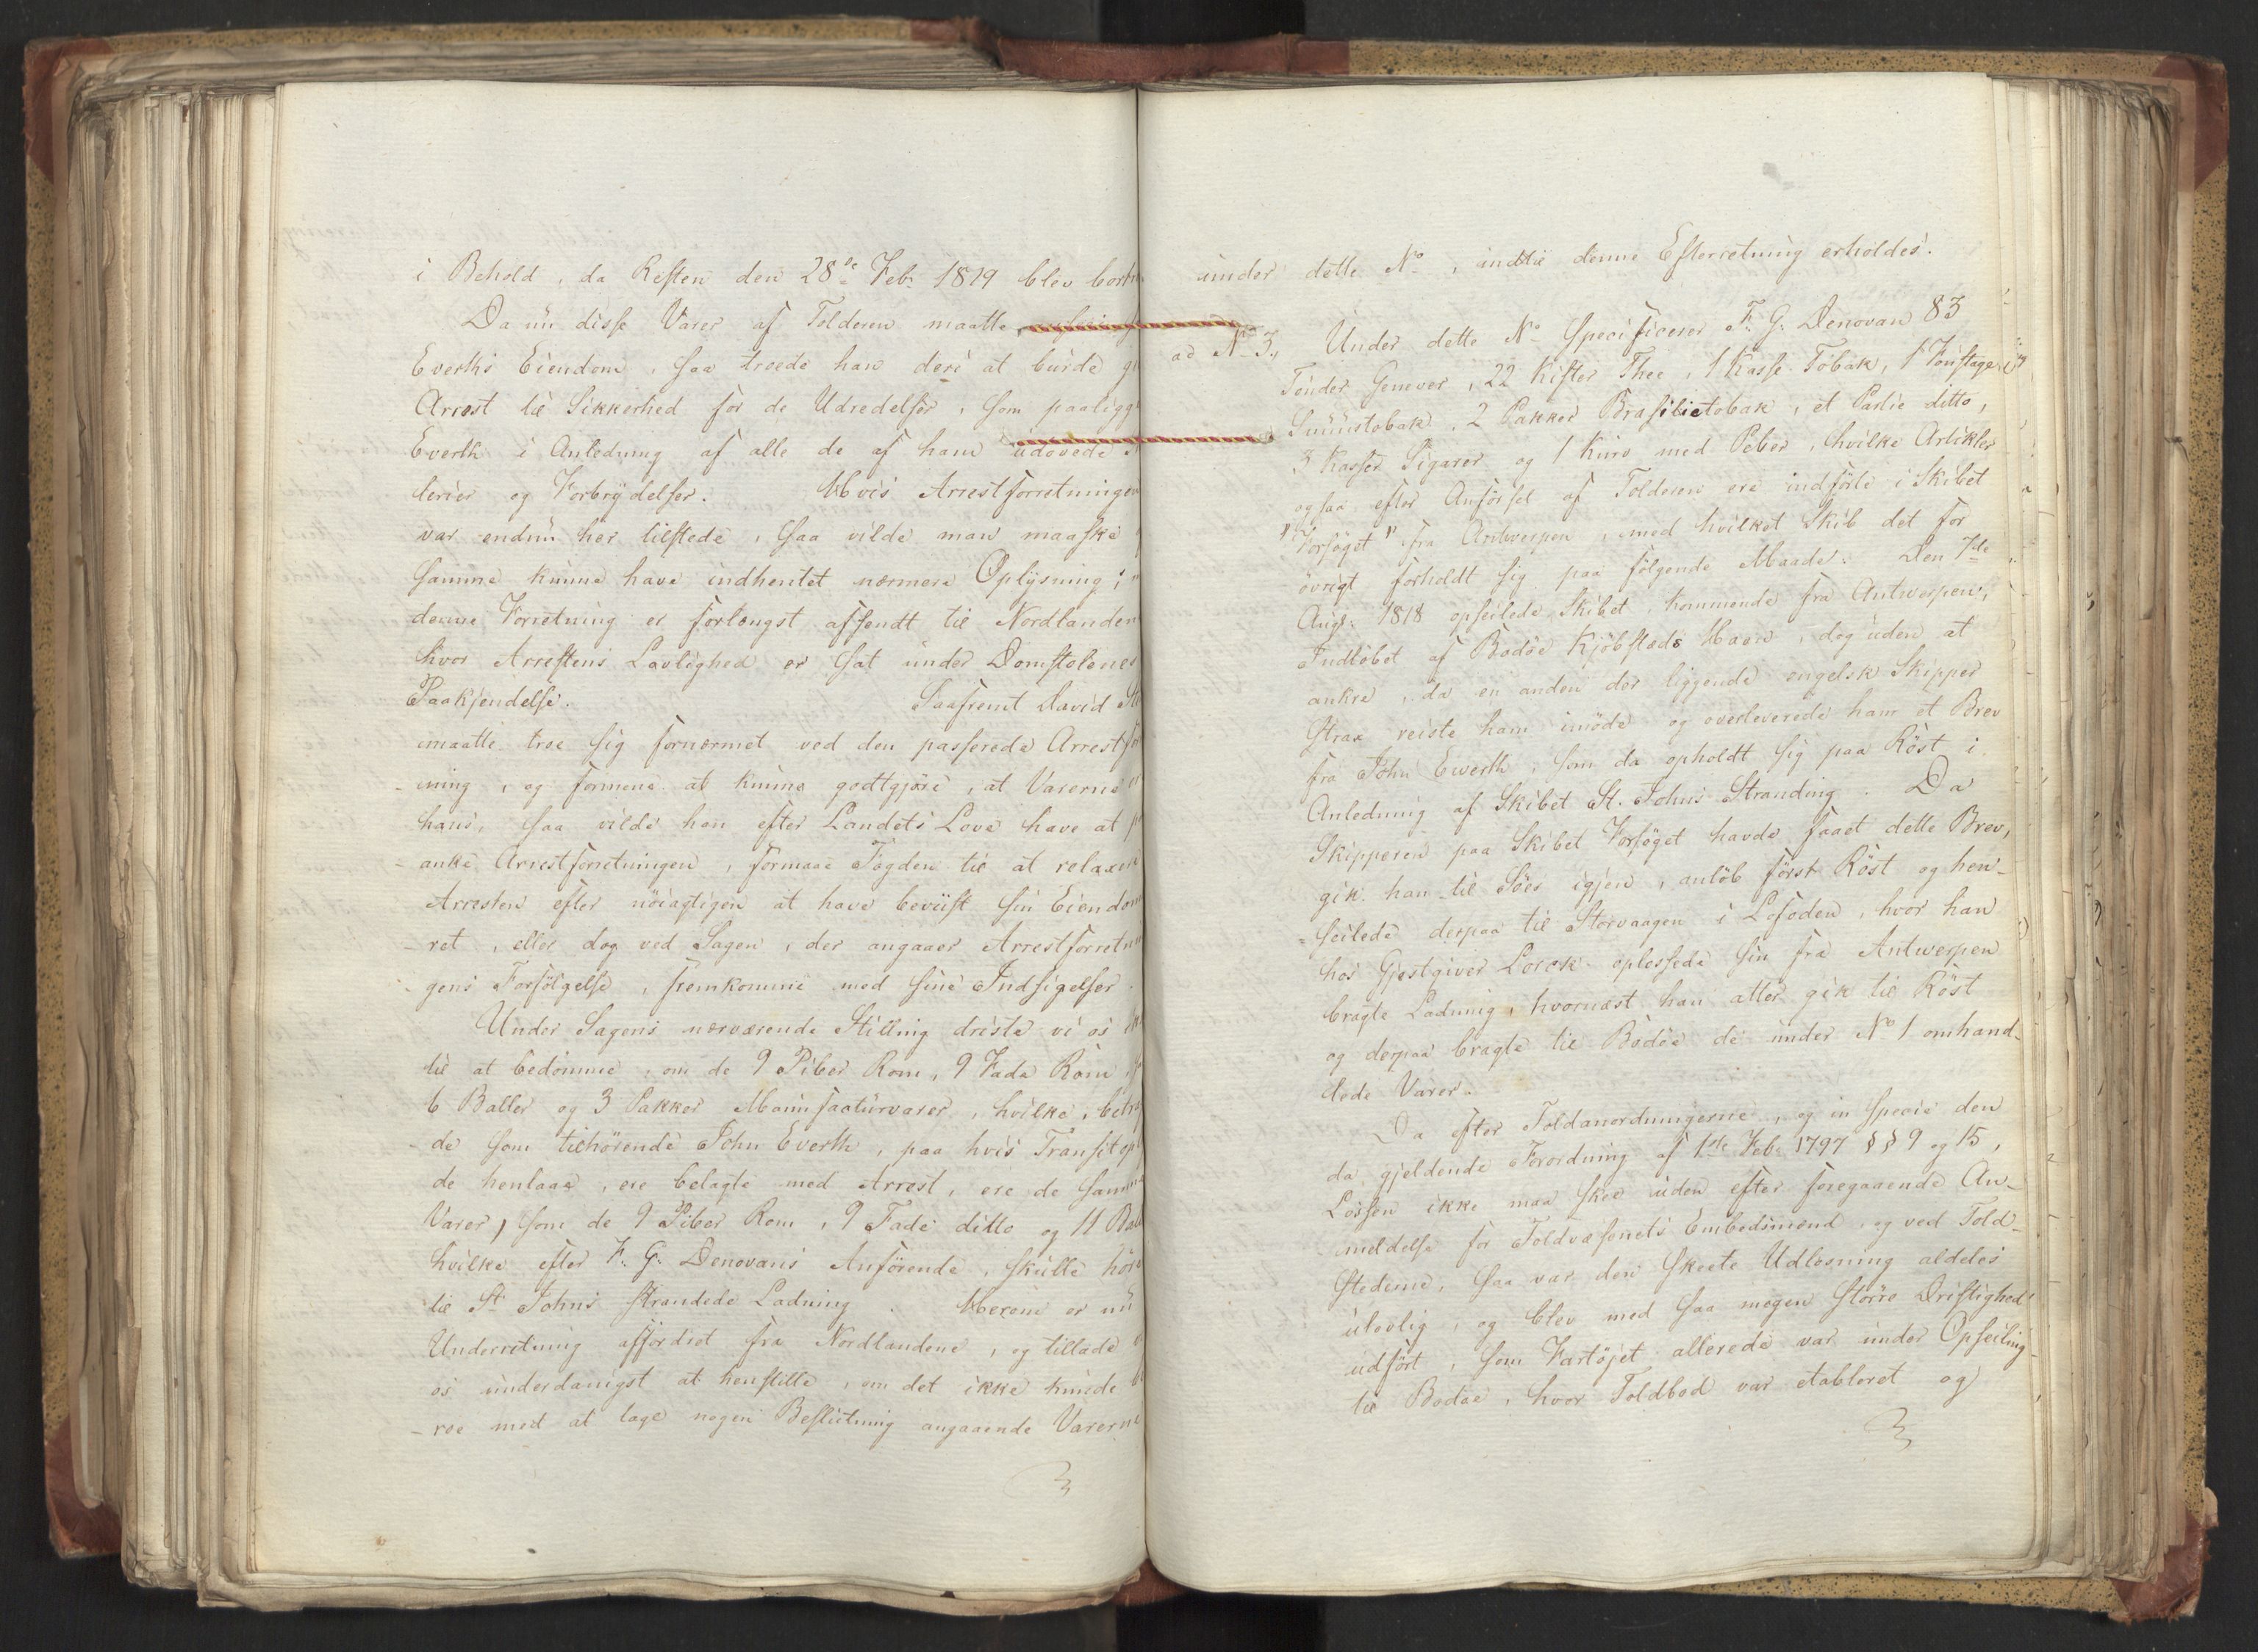 i Behold, da Resten den 28de Feb: 1819 blev bort
Da nu disse Varer af Tolderen maatte
Everths Eiendom, saa troede han deri at burde
Arrest til Sikkerhed for de Udredelser, som paaligge
Everth i Anledning af alle de af ham udøvede
lerier og Forbrydelser. Hvis Arrestforretningen
var endnu her tilstede, saa vilde man maaske
samme kunne have indhentet nærmere Oplysning;
denne Forretning er forlængst afsendt til Nordlanden
hvor Arrestens Lovlighed er sat under Domstolenes
Paakjendelse. Saafremt David
maatte troe sig fornærmet ved den passerede Arrestfor
-ning, og formene at kunne godtgjøre, at Varerne er
hans, saa vilde han efter Landets Love have at
-anke Arrestforretningen, formaae Fogden til at relaxere
Arresten efter nöiagtigen at have beviist sin Eiendoms
-ret, eller dog ved Sagen, der angaaer Arrestforretnin
-gens Forfölgelse, fremkomme med sine Indsigelser.
Under Sagens nærværende Stilling driste vi os
til at bedömme, om de 9 Piber Rom, 9 Fade Rom,
6 Baller og 3 Pakker Manufacturvarer, hvilke,
de som tilhörende John Everth, paa hvis Transitop
de henlaae, ere belagte med Arrest, ere de samme
Varer, som de 9 Piber Rom, 9 Fade ditto og 11
hvilke efter F. G. Denovans Anförende, skulle höre
til St Johns strandede Ladning. Herom er nu
Underretning affordret fra Nordlandene, og tillade
os underdanigst at henstille, om det ikke kunde
-roe med at tage nogen Beslutning angaaende Varerne
under dette No, indtil denne Efterretning erholdes.
ad No 3, Under dette No specificerer F. G. Denovan 83
Tönder Genever, 22 Kister Thee, 1 Kasse Tobak, 1 Foustage
Snuustobak, 2 Pakker Brasilietobak, et Partie ditto,
3 Kasser Sigarer og 1 Kurv med Peber, hvilke Artikler
ogsaa efter Anförsel af Tolderen ere indförte i Skibet
"Forsöget" fra Antwerpen, med hvilket Skib det for
övrigt forholdt sig paa fölgende Maade: Den 7de
Aug: 1818 opseilede Skibet, kommende fra Antwerpen,
Indlöbet af Bodöe Kjöbstads Havn, dog uden at
ankre, da en anden der liggende engelsk Skipper
strax reiste ham imöde og overleverede ham et Brev
fra John Ewerth, som da opholdt sig paa Röst i
Anledning af Skibet St. Johns Stranding. Da
Skipperen paa Skibet Forsöget havde faaet dette Brev,
gik han til Söes igjen, anlöb först Röst og hen-
=seilede derpaa til Storvaagen i Lofoden, hvor han
hos Gjestgiver Lorck oplossede sin fra Antwerpen
bragte Ladning, hvornæst han atter gik til Röst
og derpaa bragte til Bodöe de under No 1 omhand-
lede Varer.
Da efter Toldanordningerne, og in specie den
da gjeldende Forordning af 1ste Feb: 1797 §§ 9 og 15,
Lossen ikke maa skee uden efter foregaaende An-
-meldelse for Toldvæsenets Embedsmænd, og ved Told-
stederne, saa var den skeete Udlosning aldeles
ulovlig, og blev med saa megen större Dristighed
udfört, som Fartöjet allerede var under Opseiling
til Bodöe, hvor Toldbod var etableret og